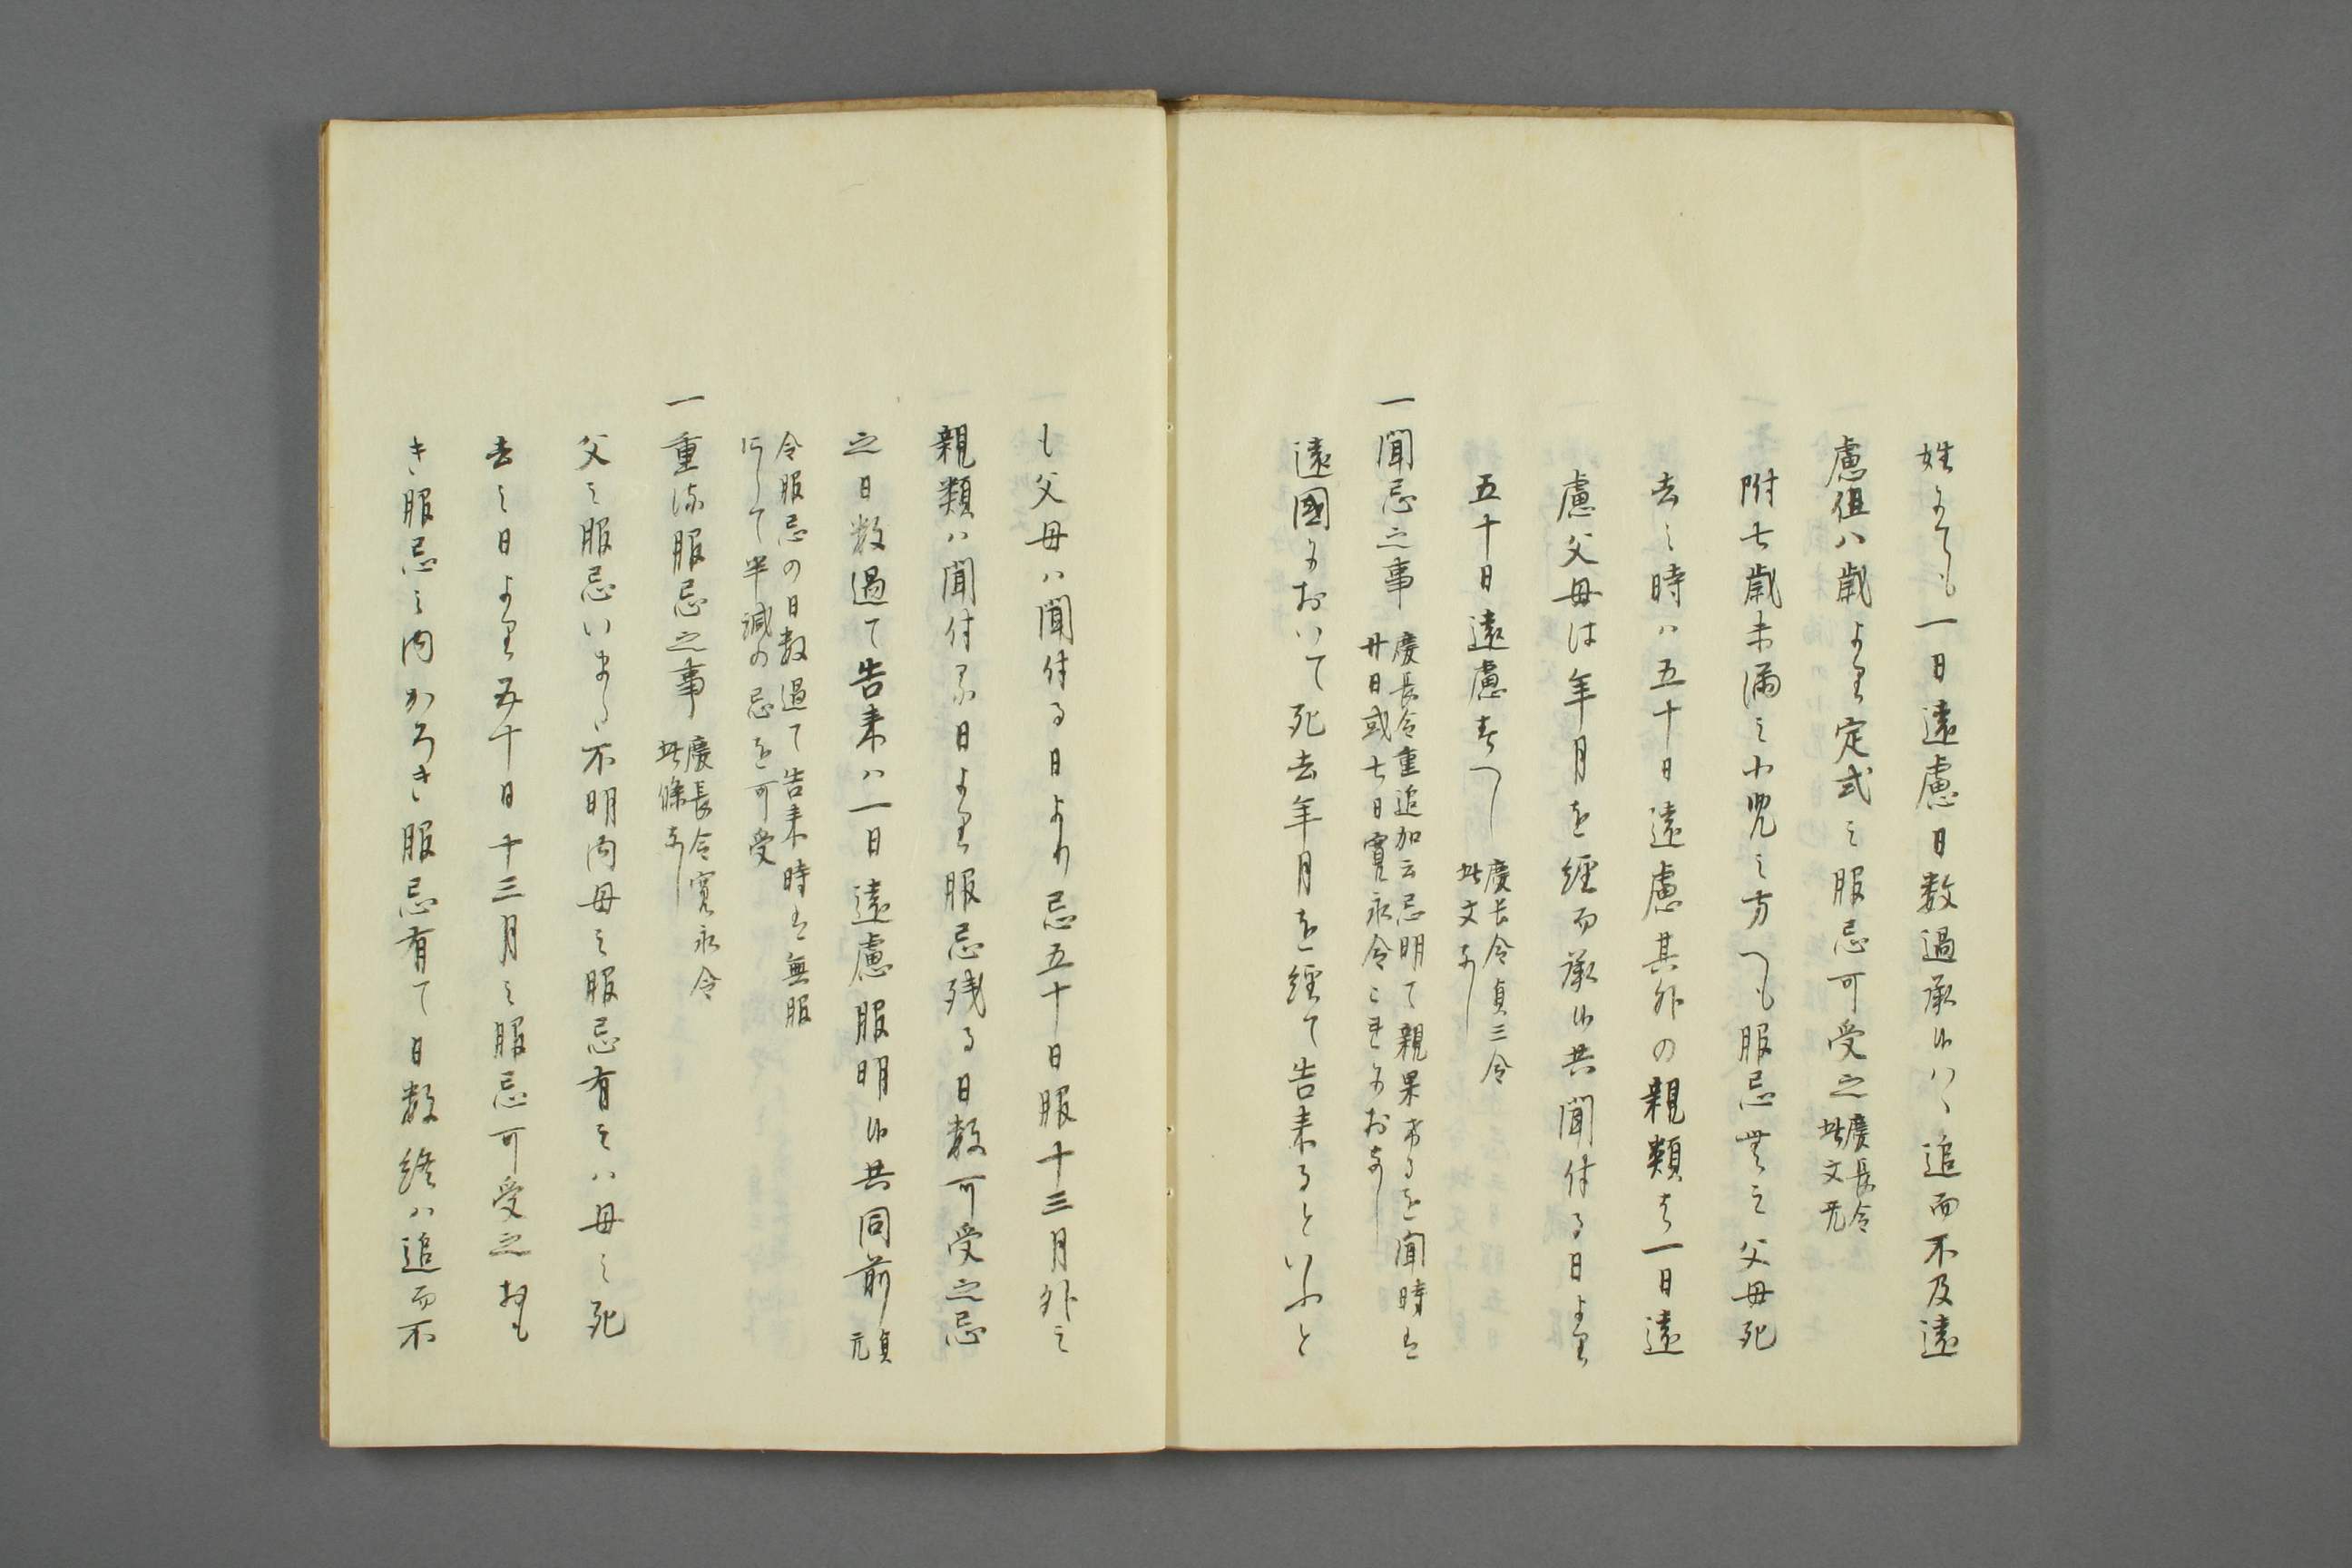 姓にても一日遠慮日数過承候ハヽ追而不及遠
慮但八歳より定式之服忌可受之
慶長令
此文无
附七歳未満之小児之方へも服忌無之父母死
去之時ハ五十日遠慮其外の親類は一日遠
慮父母は年月を経而承候共聞付る日より
五十日遠慮すへし
慶長令貞三令
此文なし
一聞忌之事
慶長令重追加云忌明て親果するを聞時は
廿日或七日寛永令これにおなし
遠國において死去年月を経て告来るといふと
も父母ハ聞付る日より忌五十日服十三月外之
親類ハ聞付る日より服忌残る日数可受之忌
之日数過て告来ハ一日遠慮服明候共同前
貞元
令服忌の日数過て告来時は無服
にして半減の忌を可受
一重服忌之事
慶長令寛永令
此條なし
父之服忌いまた不明内母之服忌有之ハ母之死
去之日より五十日十三月之服忌可受之おも
き服忌之内かろき服忌有て日数終ハ追而不